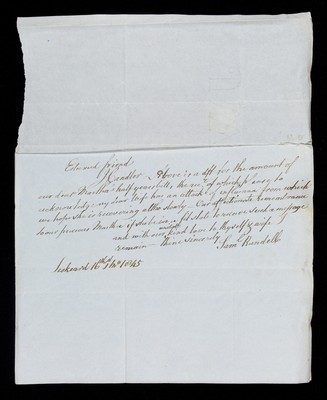 Esteemed friend
J Candler, Above is a dft for the amount of
our dear Martha's half years bill, the rec.t of which please to
acknowledge – my dear wife has an attack of influenza from which
we hope she is recovering altho slowly. Our affectionate remembrance
to our precious Martha if she be in a fit state to receive such a message
and with our kind love to thyself & wife
remain – thine sincerely Sam.l Rundell
Liskeard 16th 1845